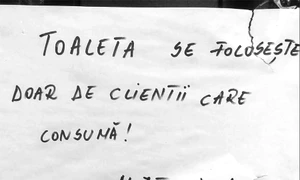 TOALETA SE FOLOSEȘTE
DOAR DE CLIENTII CARE
CONSUMĂ!